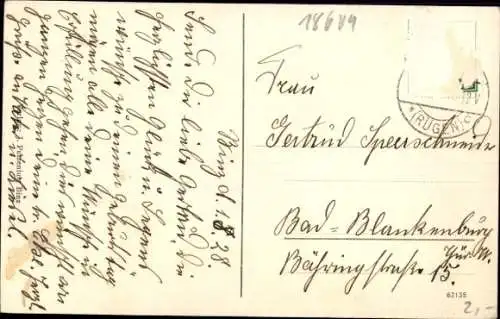 18649
Binz d. 1.8.28
Sende dir liebe Gertrud die
herzlichsten Glück u. Segens
wünsche zu deinem Geburtstag
mögen alle deine Wünsche in
Erfüllung gehen, dies wünscht von
ganzem Herzen deine
Grüße
Frau
Gertrud Speerschneider
Bad=Blankenburg
Thür. W.
Bähringstraße 15.
(RÜGEN)
62135
2,-